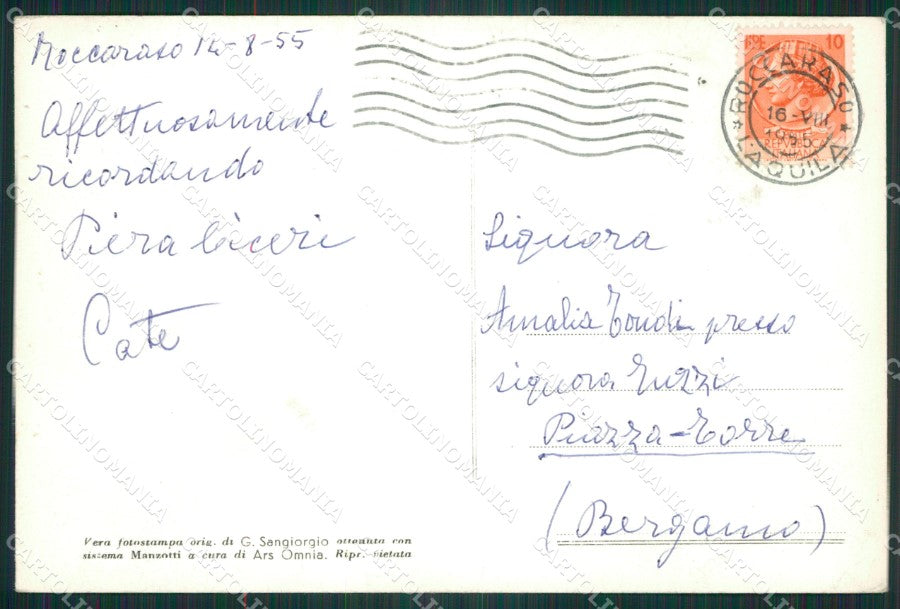 Roccaraso 14-8-55
Affettuosamente
ricordando
Piera Ciceri
Cate
ROCCARASO
16-VIII
1955
L'AQUILA
10
Signora
Amalia Tondi presso
signora Tuzzi
Piazza-Torre
(Bergamo)
Vera fotostampa orig. di G. Sangiorgio ottenuta con
sistema Manzotti a cura di Ars Omnia. Ripr. vietata
CARTOLINOMANIA